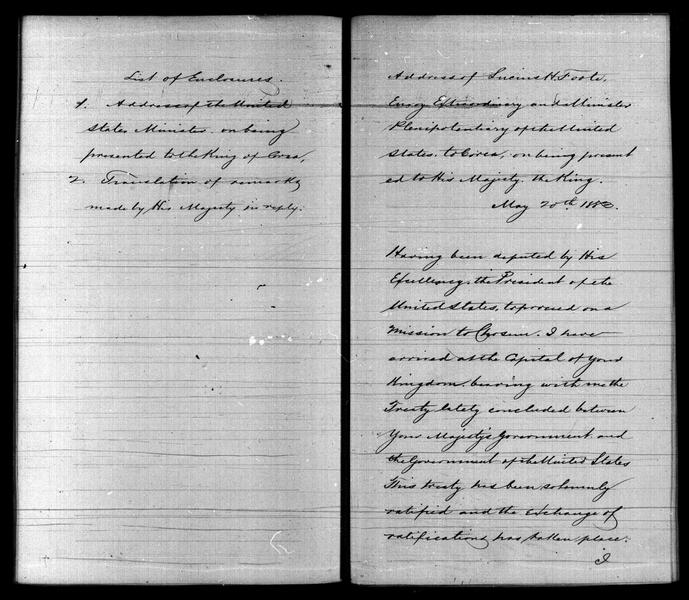 List of Enclosures.
1. Address of the United
States Minister, on being
presented to the King of Corea,
2. Translation of remarks
made by His Majesty in reply.
Address of Lucius H. Foote,
Envoy Extraordinary and Minister
Plenipotentiary of the United
States, to Corea, on being present
ed to His Majesty the King.
May 20th 1883.
Having been deputed by His
Excellency, the President of the
United States, to proceed on a
Mission to Chosen. I have
arrived at the Capital of Your
Kingdom, bearing with me the
Treaty lately concluded between
Your Majesty's Government and
the Government of the United States
This treaty has been solemnly
ratified and the exchange of
ratifications has taken place.
I